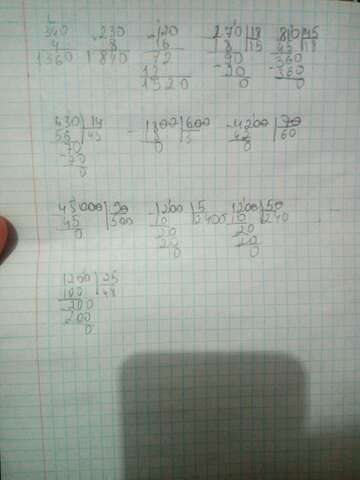 340 230 120 270 18 810 45
4 8 16 18 15 45 18
1360 1840 72 90 360
12 90 360
1920 0 0
630 14 1800 600 4200 70
56 45 18 3 42 60
70 0 0
70
0
45000 90 1200 5 1200 50
45 500 10 2400 10 240
0 20 20
20 20
0 0
1200 25
100 48
200
200
0